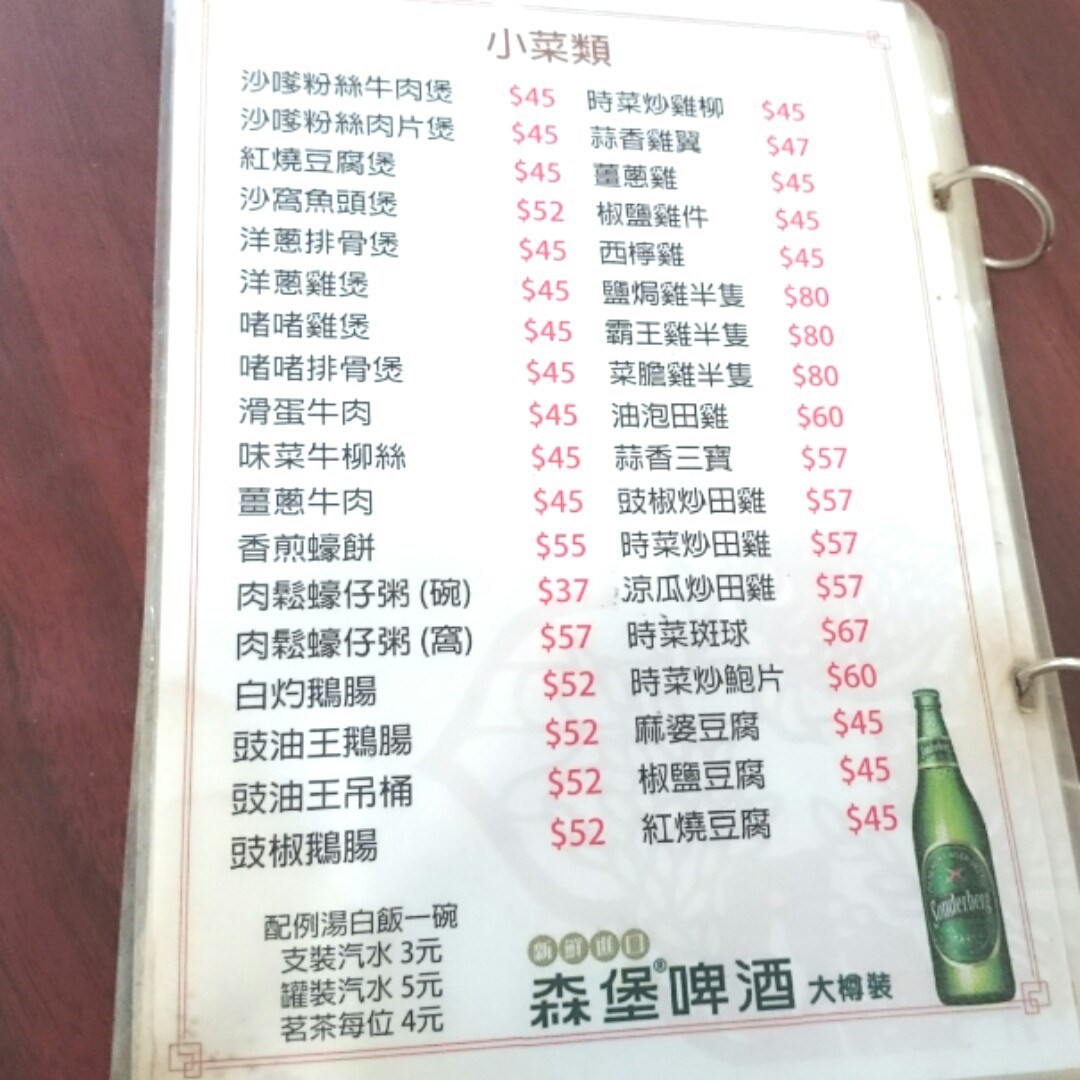 小菜類
沙嗲粉絲牛肉煲 $45
沙嗲粉絲肉片煲 $45
紅燒豆腐煲 $45
沙窩魚頭煲 $52
洋蔥排骨煲 $45
洋蔥雞煲 $45
啫啫雞煲 $45
啫啫排骨煲 $45
滑蛋牛肉 $45
味菜牛柳絲 $45
薑蔥牛肉 $45
香煎蠔餅 $55
肉鬆蠔仔粥 (碗) $37
肉鬆蠔仔粥 (窩) $57
白灼鵝腸 $52
豉油王鵝腸 $52
豉油王吊桶 $52
豉椒鵝腸 $52
時菜炒雞柳 $45
蒜香雞翼 $47
薑蔥雞 $45
椒鹽雞件 $45
西檸雞 $45
鹽焗雞半隻 $80
霸王雞半隻 $80
菜膽雞半隻 $80
油泡田雞 $60
蒜香三寶 $57
豉椒炒田雞 $57
時菜炒田雞 $57
涼瓜炒田雞 $57
時菜斑球 $67
時菜炒鮑片 $60
麻婆豆腐 $45
椒鹽豆腐 $45
紅燒豆腐 $45
配例湯白飯一碗
支裝汽水 3元
罐裝汽水 5元
茗茶每位 4元
新鮮進口
森堡®啤酒 大樽裝
Sonderberg